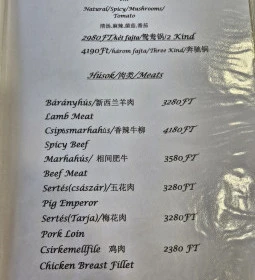 Natural/Spicy/Mushrooms/
Tomato
清汤,麻辣,菌菇,番茄
2980FT két fajta/鸳鸯锅/2 Kind
4190Ft/három fajta/Three Kind/奔驰锅
Húsok/肉类/Meats
Bárányhús/新西兰羊肉 3280FT
Lamb Meat
Csípősmarhahús/香辣牛柳 4180FT
Spicy Beef
Marhahús/ 相间肥牛 3580FT
Beef Meat
Sertés(császár)/五花肉 3280FT
Pig Emperor
Sertés(Tarja)/梅花肉 3280FT
Pork Loin
Csirkemellfile 鸡肉 2380 FT
Chicken Breast Fillet